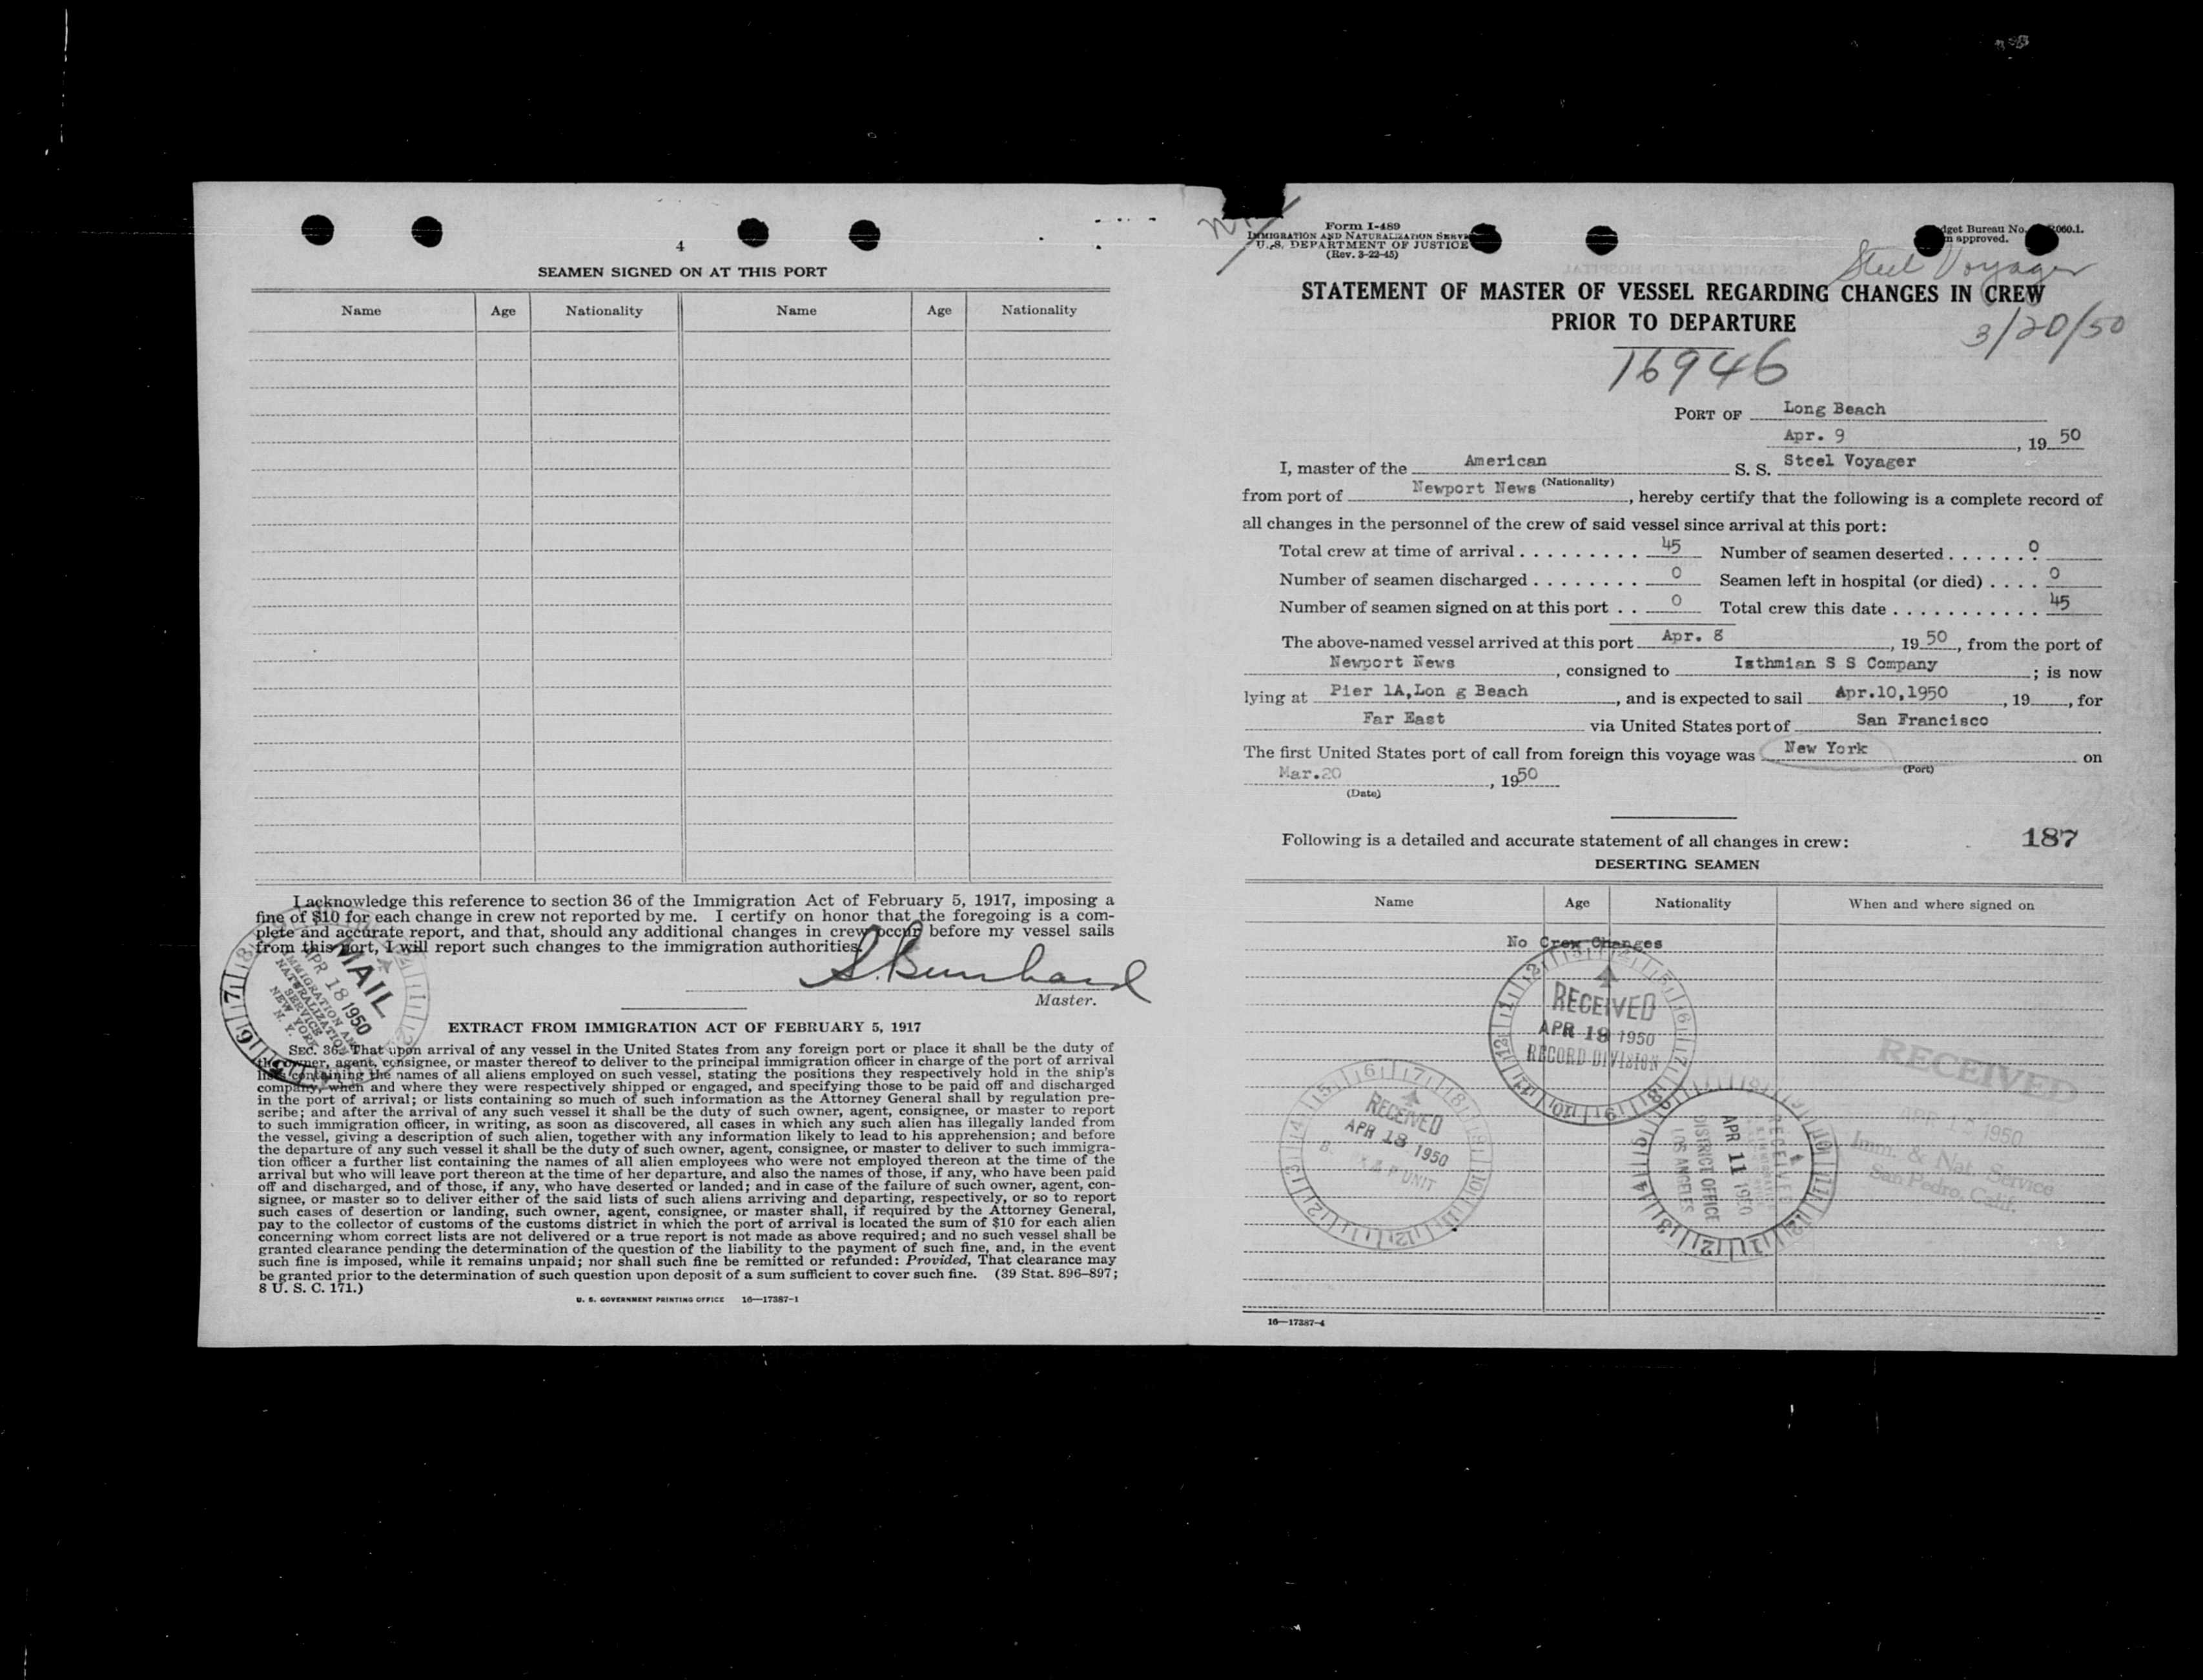 4
SEAMEN SIGNED ON AT THIS PORT
Name Age Nationality Name Age Nationality
I acknowledge this reference to section 36 of the Immigration Act of February 5, 1917, imposing a
fine of $10 for each change in crew not reported by me. I certify on honor that the foregoing is a com-
plete and accurate report, and that, should any additional changes in crew occur before my vessel sails
from this port, I will report such changes to the immigration authorities.
Master.
MAIL
APR 18 1950
IMMIGRATION AND
NATURALIZATION
SERVICE
NEW YORK
N. Y.
EXTRACT FROM IMMIGRATION ACT OF FEBRUARY 5, 1917
SEC. 36. That upon arrival of any vessel in the United States from any foreign port or place it shall be the duty of
the owner, agent, consignee, or master thereof to deliver to the principal immigration officer in charge of the port of arrival
lists containing the names of all aliens employed on such vessel, stating the positions they respectively hold in the ship's
company, when and where they were respectively shipped or engaged, and specifying those to be paid off and discharged
in the port of arrival; or lists containing so much of such information as the Attorney General shall by regulation pre-
scribe; and after the arrival of any such vessel it shall be the duty of such owner, agent, consignee, or master to report
to such immigration officer, in writing, as soon as discovered, all cases in which any such alien has illegally landed from
the vessel, giving a description of such alien, together with any information likely to lead to his apprehension; and before
the departure of any such vessel it shall be the duty of such owner, agent, consignee, or master to deliver to such immigra-
tion officer a further list containing the names of all alien employees who were not employed thereon at the time of the
arrival but who will leave port thereon at the time of her departure, and also the names of those, if any, who have been paid
off and discharged, and of those, if any, who have deserted or landed; and in case of the failure of such owner, agent, con-
signee, or master so to deliver either of the said lists of such aliens arriving and departing, respectively, or so to report
such cases of desertion or landing, such owner, agent, consignee, or master shall, if required by the Attorney General,
pay to the collector of customs of the customs district in which the port of arrival is located the sum of $10 for each alien
concerning whom correct lists are not delivered or a true report is not made as above required; and no such vessel shall be
granted clearance pending the determination of the question of the liability to the payment of such fine, and, in the event
such fine is imposed, while it remains unpaid; nor shall such fine be remitted or refunded: Provided, That clearance may
be granted prior to the determination of such question upon deposit of a sum sufficient to cover such fine. (39 Stat. 896–897;
8 U. S. C. 171.)
U. S. GOVERNMENT PRINTING OFFICE 16—17387-1
Form I-489
IMMIGRATION AND NATURALIZATION
U. S. DEPARTMENT OF JUSTICE
(Rev. 3-22-45)
Bureau No. 060.1.
approved.
Steel Voyager
STATEMENT OF MASTER OF VESSEL REGARDING CHANGES IN CREW
PRIOR TO DEPARTURE
3/20/50
16946
PORT OF Long Beach
Apr. 9, 19 50
I, master of the American S. S. Steel Voyager
(Nationality)
from port of Newport News, hereby certify that the following is a complete record of
all changes in the personnel of the crew of said vessel since arrival at this port:
Total crew at time of arrival . . . . . . . . . 45 Number of seamen deserted . . . . . . 0
Number of seamen discharged . . . . . . . . 0 Seamen left in hospital (or died) . . . . 0
Number of seamen signed on at this port . . 0 Total crew this date . . . . . . . . . . . 45
The above-named vessel arrived at this port Apr. 8, 19 50, from the port of
Newport News, consigned to Isthmian S S Company; is now
lying at Pier 1A,Lon g Beach, and is expected to sail Apr.10,1950, 19, for
Far East via United States port of San Francisco
The first United States port of call from foreign this voyage was New York on
(Port)
Mar.20, 19 50
(Date)
Following is a detailed and accurate statement of all changes in crew: 187
DESERTING SEAMEN
Name Age Nationality When and where signed on
No Crew Changes
RECEIVED
APR 18 1950
RECORD DIVISION
RECEIVED
APR 18 1950
UNIT
RECEIVED
APR 11 1950
DISTRICT OFFICE
LOS ANGELES
RECEIVED
1950
Imm. & Nat. Service
San Pedro, Calif.
16—17387-4